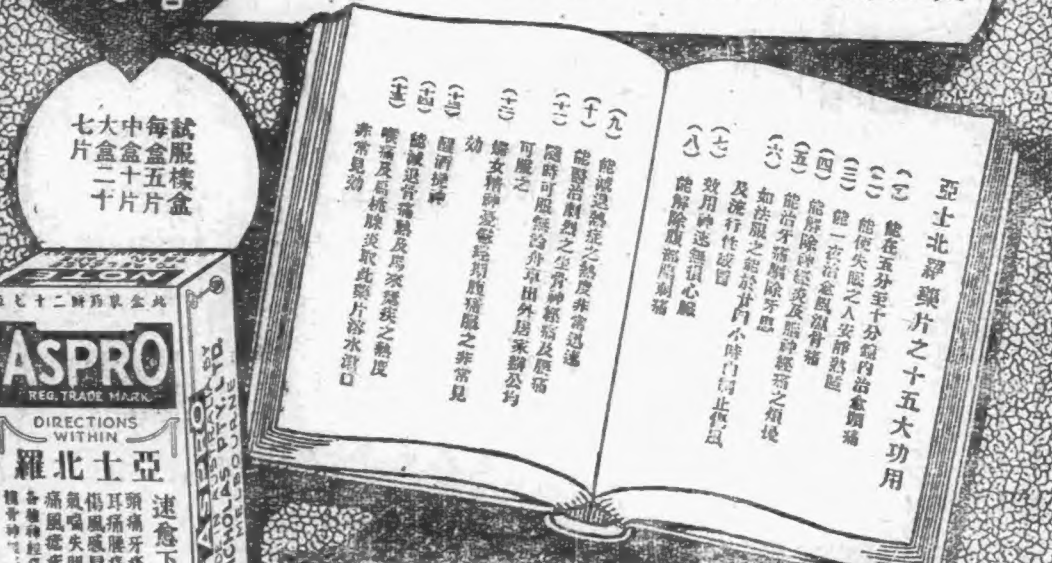 亞士北羅藥片之十五大功用
(一) 能在五分至十分鐘內治愈頭痛
(二) 能使失眠之人安靜熟睡
(三) 能一夜治愈風濕骨痛
(四) 能解除神經炎及腦神經痛之煩擾
(五) 能治牙痛解除牙患
(六) 如法服之能於廿四小時內制止傷風
及流行性感冒
(七) 效用神速無損心臟
(八) 能解除腹部刺痛
(九) 能減退熱症之熱度非常迅速
(十) 能醫治劇烈之坐骨神經痛及腰痛
(十一) 隨時可服無論舟車出外居家辦公均
可服之
(十二) 婦女精神憂鬱經期腹痛服之非常見
効
(十三) 醒酒提神
(十四) 能減退骨痛熱及馬來瘧疾之熱度
(十五) 喉痛及扁桃腺炎取此藥片溶水漱口
非常見効
試服樣盒
每盒五片
中盒十片
大盒二十
七片
NOTE
ASPRO
REG. TRADE MARK
DIRECTIONS
WITHIN
亞士北羅
速愈下
頭痛牙
耳痛腰
傷風感冒
氣喘失眠
痛風